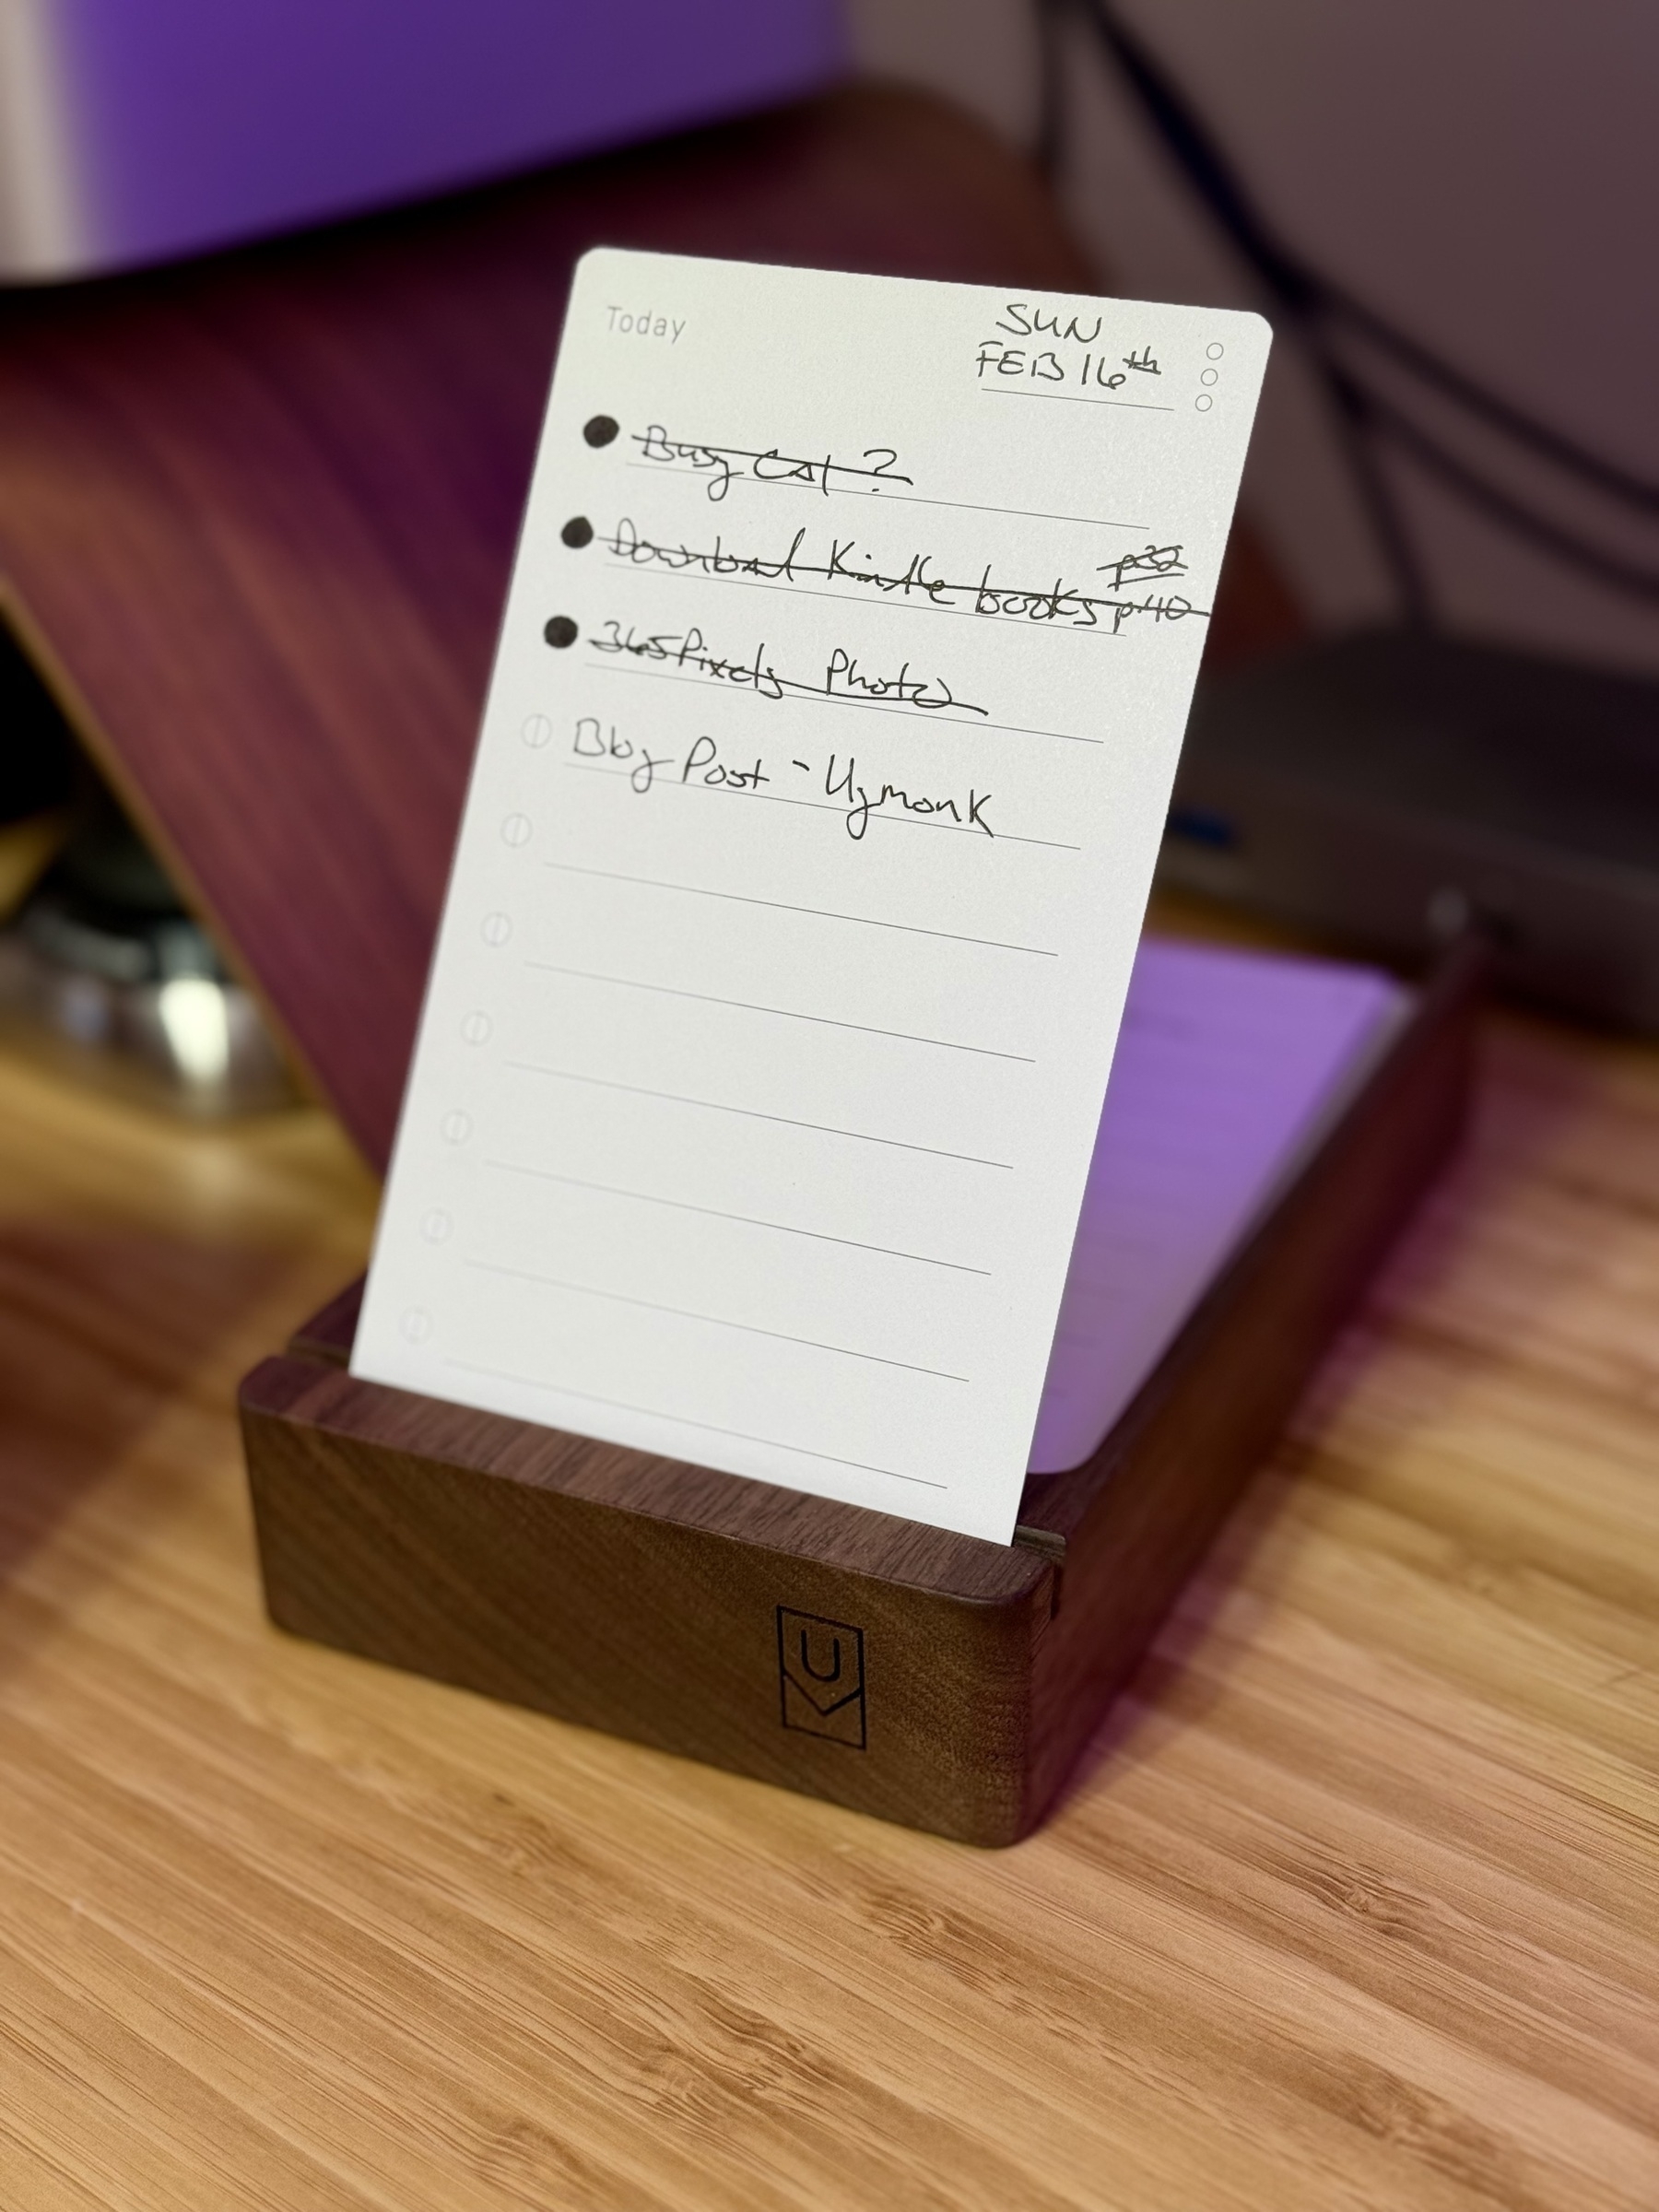 Today
SUN
FEB 16th
Busy Cal ?
p32
Download Kindle books p40
365Pixels Photo
Blog Post - Ugmonk
U